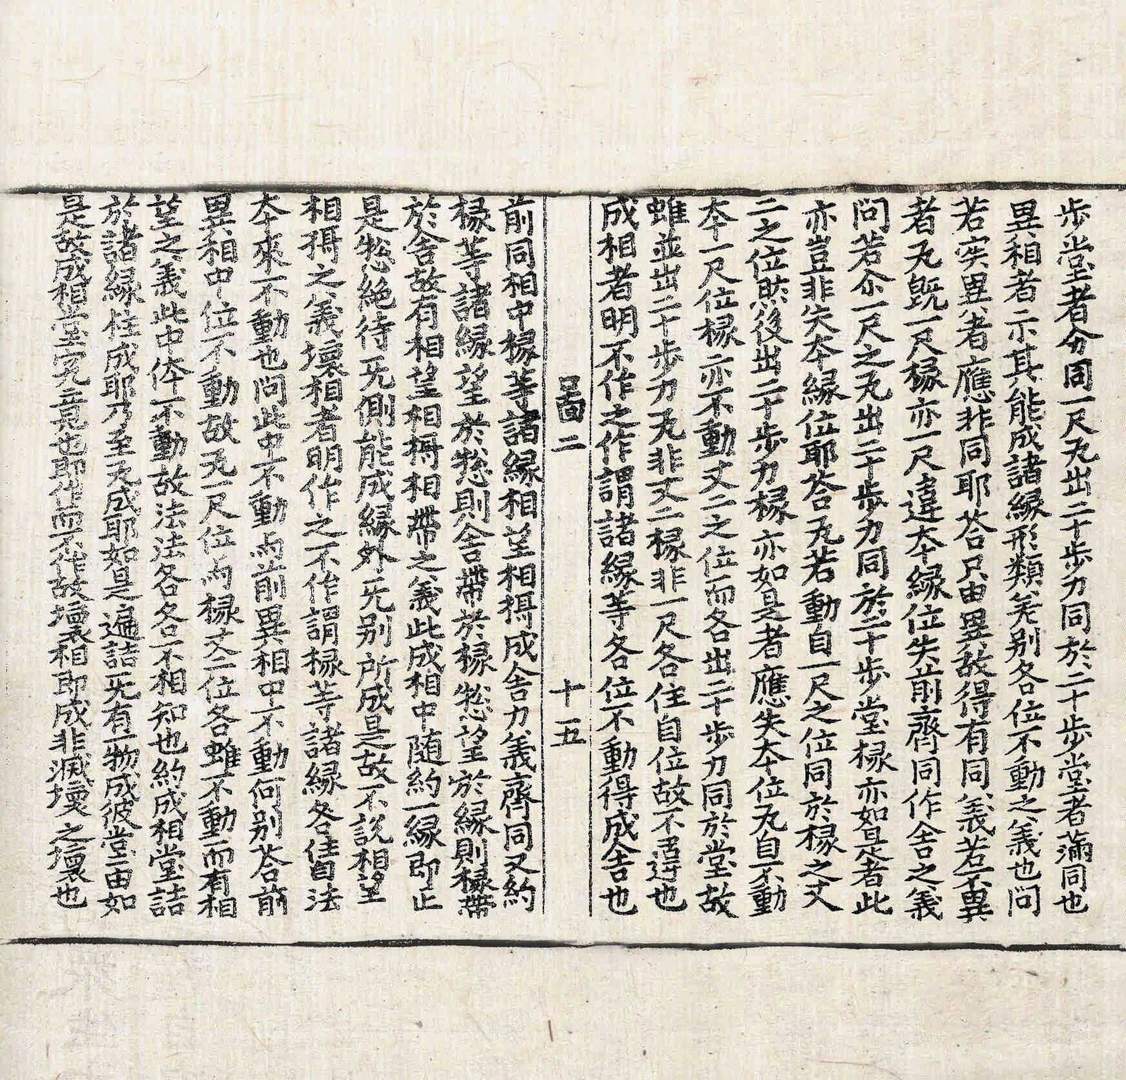 步堂者分同一尺瓦出二十步力同於二十步堂者滿同也
異相者示其能成諸緣形類差別各位不動之義也問
若实異者應非同耶荅只由異故得有同義若不異
者瓦旣一尺椽亦一尺違本緣位失前齊同作舍之義
問若尒一尺之瓦出二十步力同於二十步堂椽亦如是者此
亦豈非失本緣位耶荅瓦若動自一尺之位同於椽之丈
二之位然後出二十步力椽亦如是者應失本位瓦自不動
本一尺位椽亦不動丈二之位而各出二十步力同於堂故
雖並出二十步力瓦非丈二椽非一尺各住自位故不違也
成相者明不作之作謂諸緣等各位不動得成舍也
啚二 十五
前同相中椽等諸緣相望相㝵成舍力義齊同又約
椽等諸緣望於総則舍帶於椽総望於緣則椽帶
於舍故有相望相㝵相帶之義此成相中随約一緣即止
是総絶待旡側能成緣外旡别所成是故不說相望
相㝵之義壞相者明作之不作謂椽等諸緣各住自法
本來不動也問此中不動与前異相中不動何别荅前
異相中位不動故瓦一尺位与椽丈二位各雖不動而有相
望之義此中体不動故法法各各不相知也約成相堂詰
於諸緣柱成耶乃至瓦成耶如是遍詰旡有一物成彼堂由如
是故成相堂究竟也即作而不作故壞相即成非滅壞之壞也